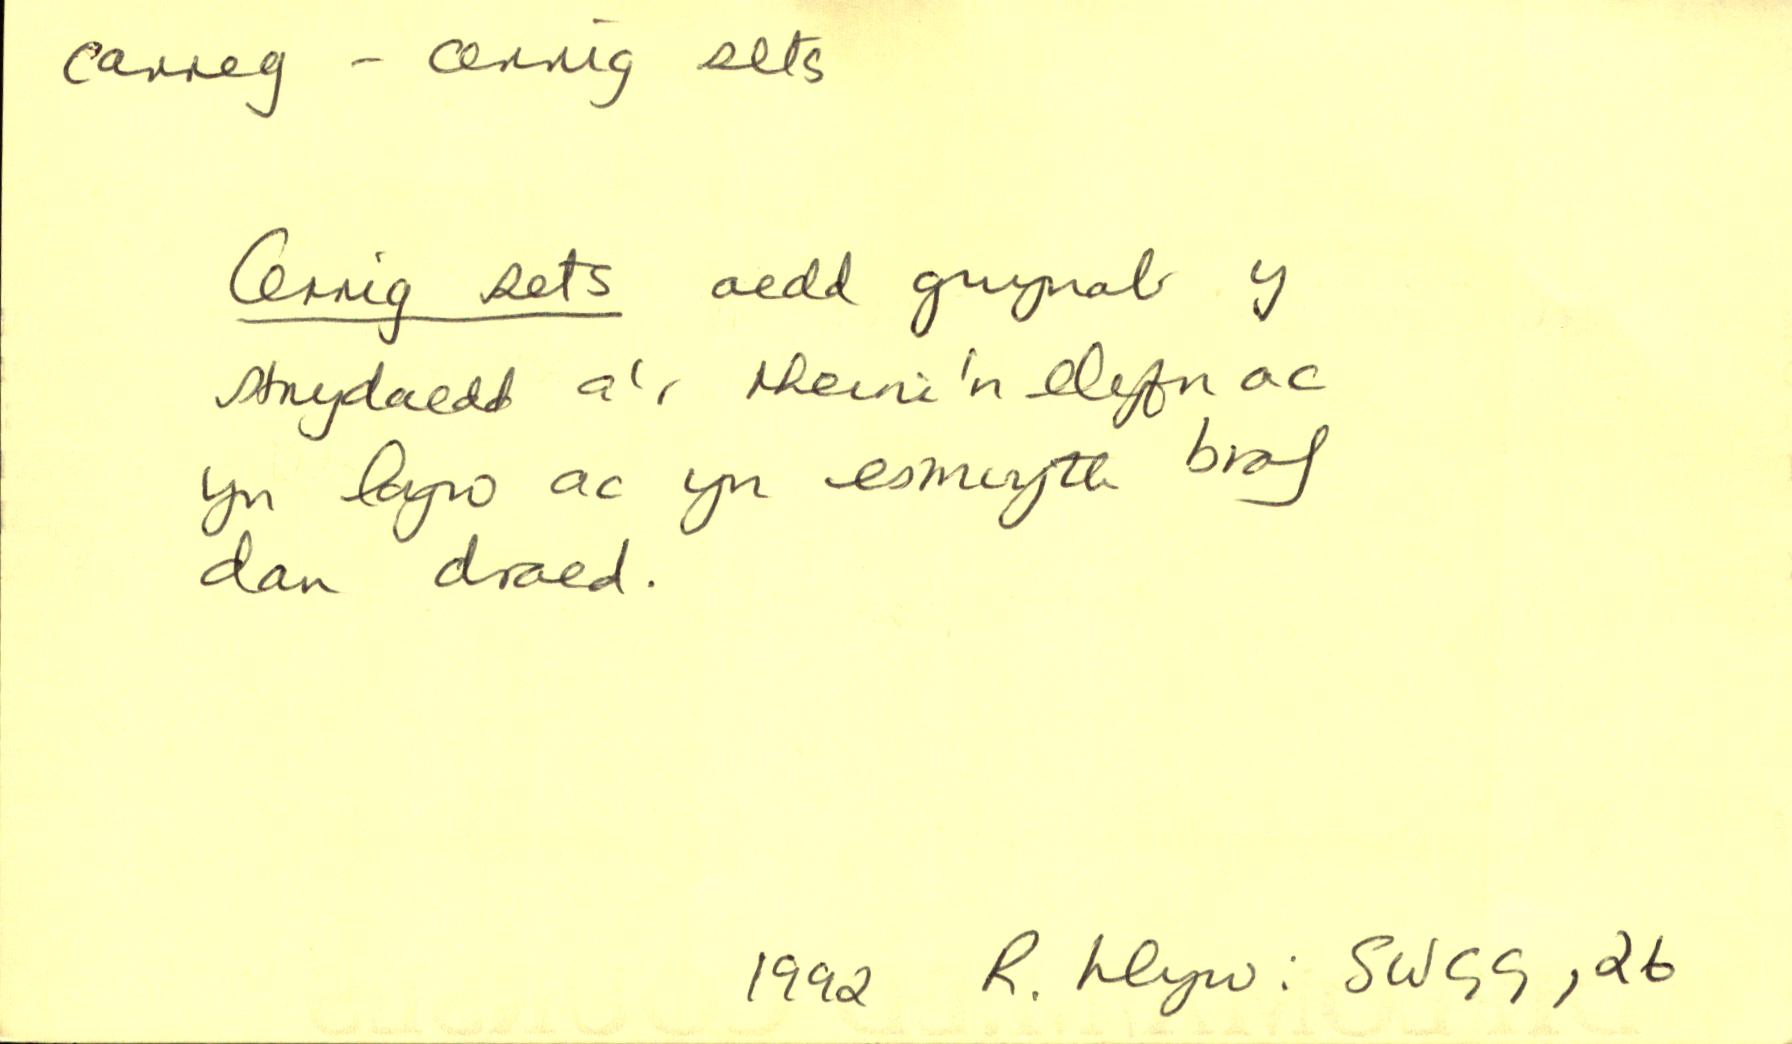 carreg - cerrig sets
Cerrig sets oedd gwynab y
strydoedd a'r rheini'n llyfn ac
yn loyw ac yn esmwyth braf
dan draed.
1992 R. Llyw: SWGG, 26